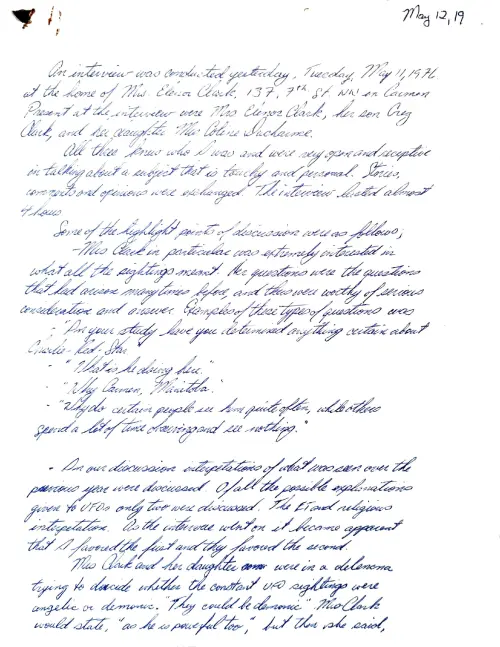 May 12, 19
An interview was conducted yesterday, Tuesday, May 11, 1976
at the home of Mrs. Elenor Clark, 137, 7th St. NW in Carmen
Present at the interview were Mrs Elenor Clark, her son Greg
Clark, and her daughter Mrs
All three knew who I was and were very open and receptive
in talking about a subject that is touchy and personal. Stories,
comments and opinions were exchanged. The interview lasted almost
4 hours
Some of the highlight points of discussion were as follows;
- Mrs Clark in particular was extremely interested in
what all the sightings meant. Her questions were the questions
that had arisen many times before, and thus were worthy of serious
consideration and answer. Examples of these types of questions was
- "In your study have you determined anything certain about
Charlie-Red-Star
- "What is he doing here."
- "Why Carmen, Manitoba."
- "Why do certain people see him quite often, while others
spend a lot of time and see nothing."
- In our discussion interpetations of what was seen over the
previous year were discussed. Of all the possible explanations
given to UFOs only two were discussed. The ET and religious
interpetation. As the interview went on it became apparent
that I favored the first and they favored the second.
Mrs Clark and her daughter were in a delemma
trying to decide whether the constant UFO sightings were
angelic or demonic. "They could be demonic" Mrs Clark
would state, "as he is powerful too", but then she said,